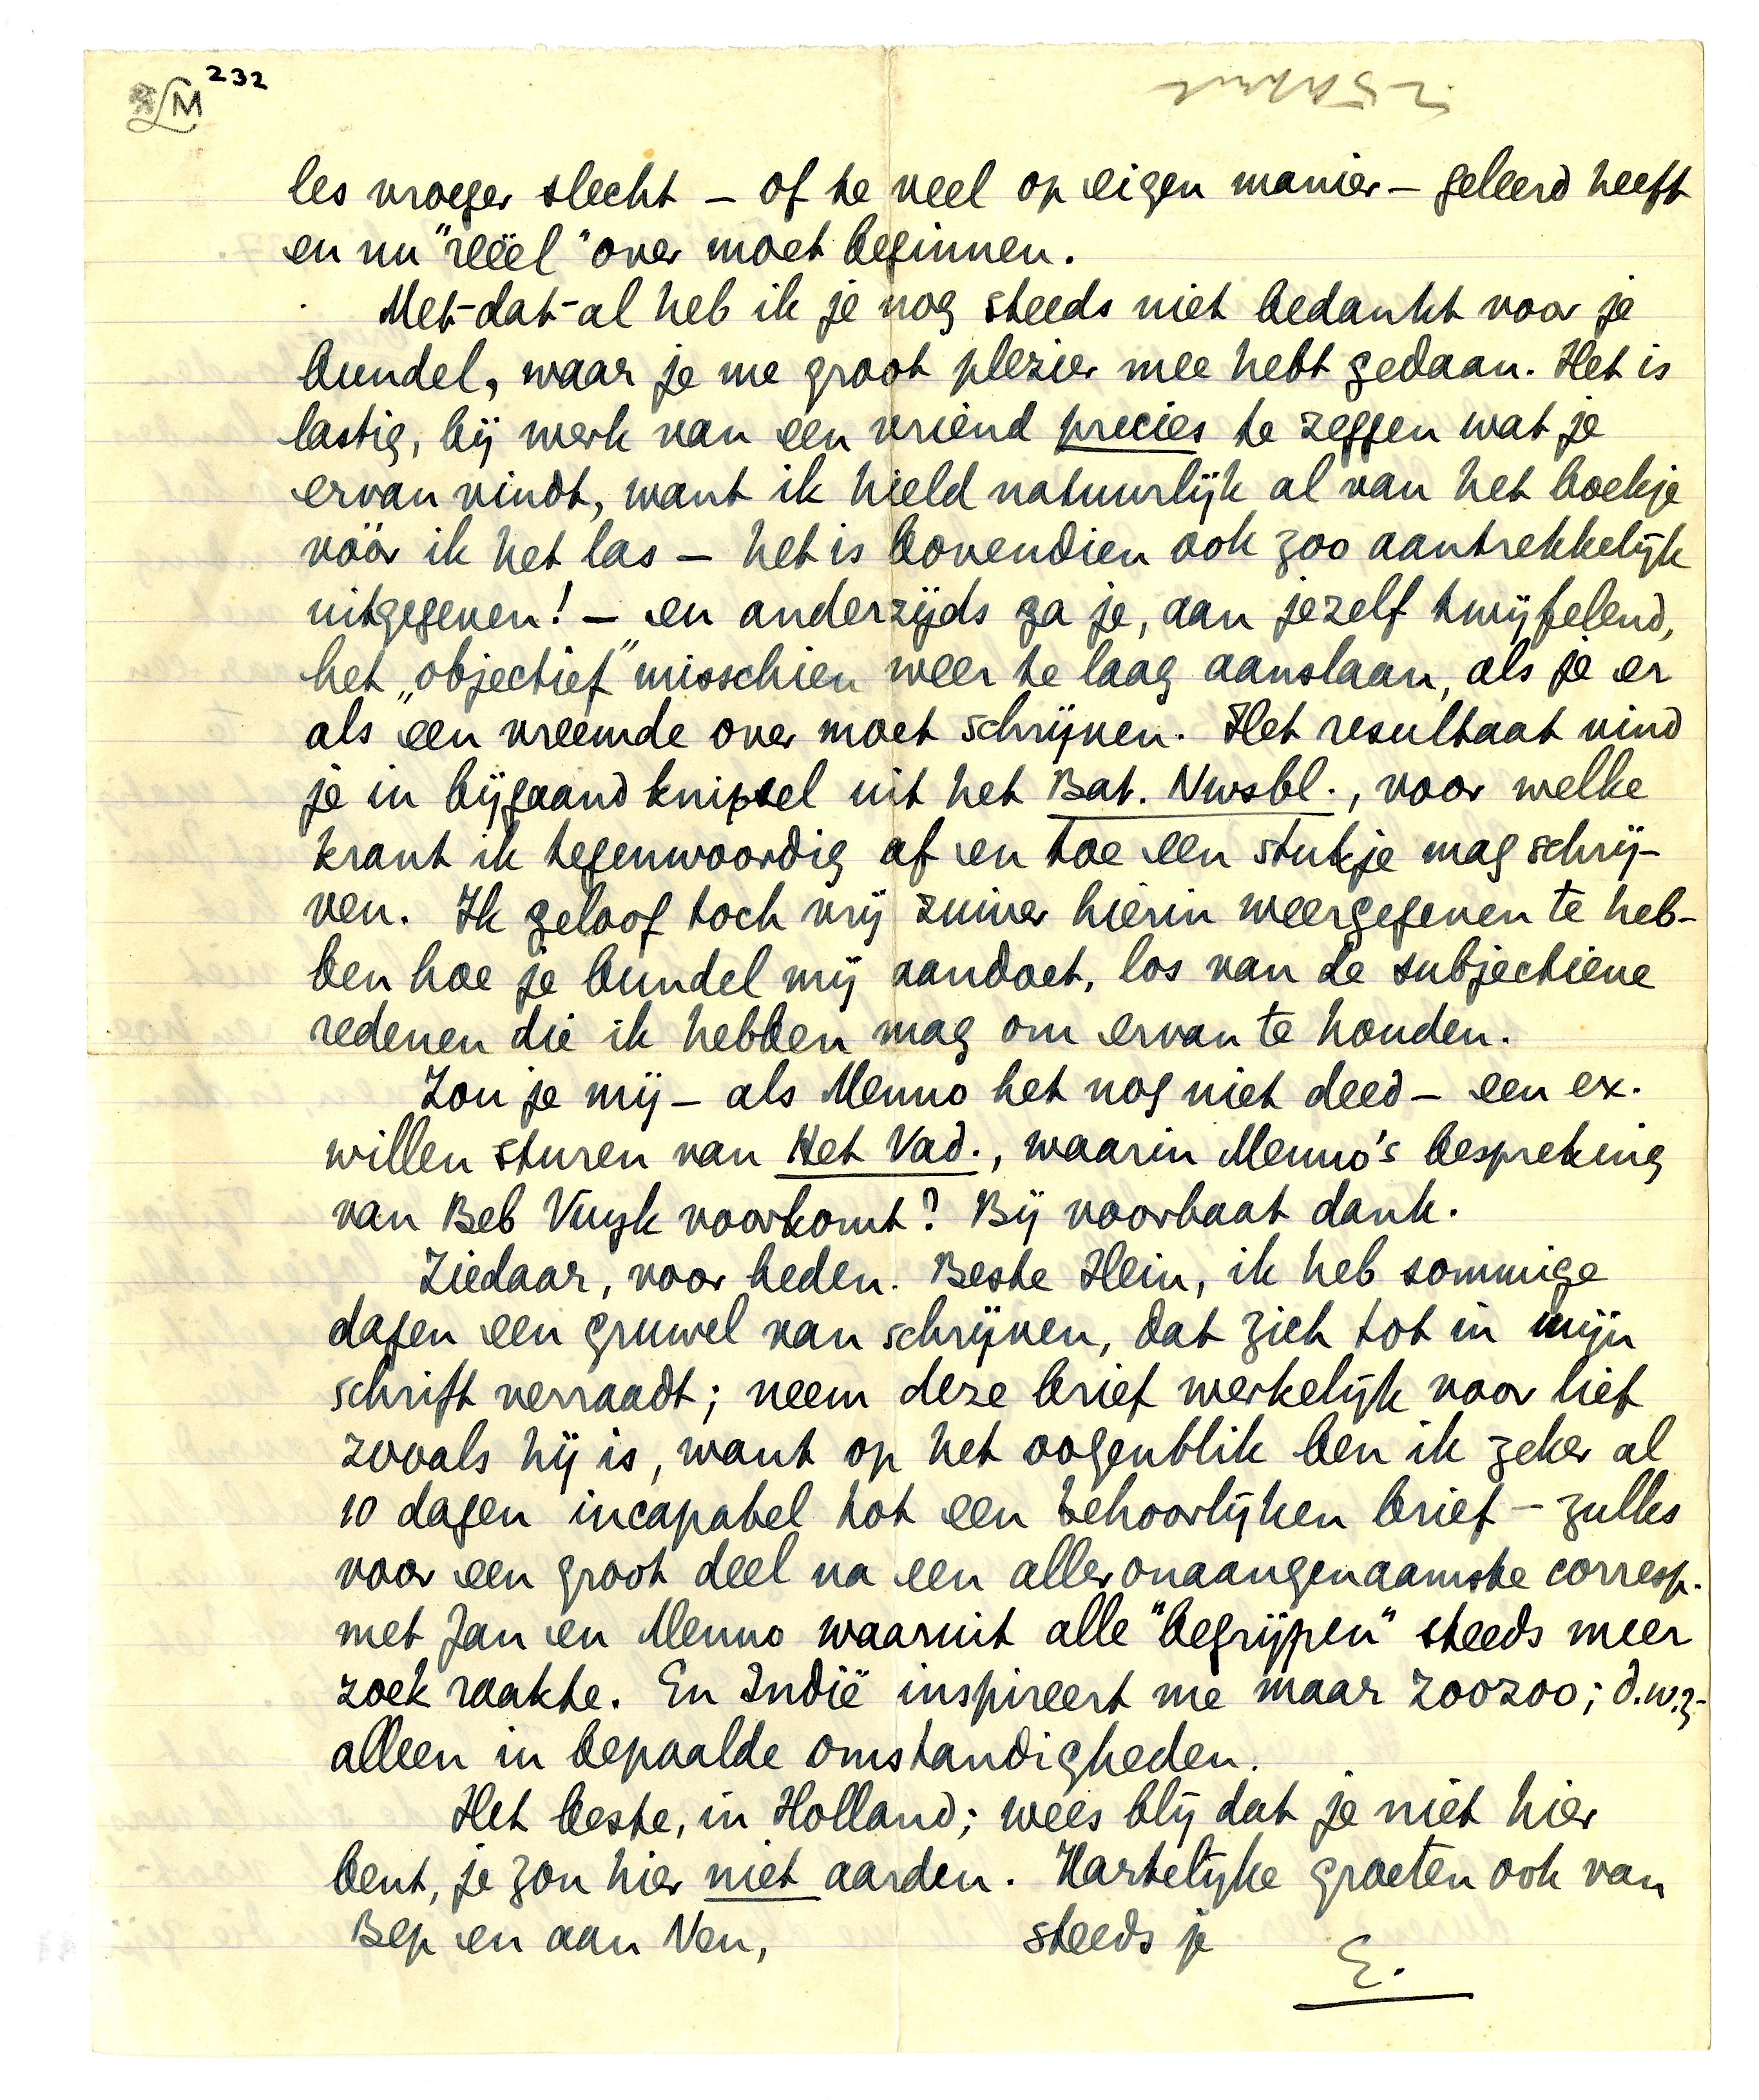 LM 232
les vroeger slecht – of te veel op eigen manier – geleerd heeft
en nu "reëel" over moet beginnen.
Met-dat-al heb ik je nog steeds niet bedankt voor je
bundel, waar je me groot plezier mee hebt gedaan. Het is
lastig, bij werk van een vriend precies te zeggen wat je
ervan vindt, want ik hield natuurlijk al van het boekje
vóór ik het las – het is bovendien ook zoo aantrekkelijk
uitgegeven! – en anderzijds ga je, aan jezelf twijfelend,
het „objectief" misschien weer te laag aanslaan, als je er
als een vreemde over moet schrijven. Het resultaat vind
je in bijgaand knipsel uit het Bat. Nwsbl., voor welke
krant ik tegenwoordig af en toe een stukje mag schrij-
ven. Ik geloof toch vrij zuiver hierin weergegeven te heb-
ben hoe je bundel mij aandoet, los van de subjectieve
redenen die ik hebben mag om ervan te houden.
Zou je mij – als Menno het nog niet deed – een ex.
willen sturen van Het Vad., waarin Menno's bespreking
van Beb Vuyk voorkomt? Bij voorbaat dank.
Ziedaar, voor heden. Beste Hein, ik heb sommige
dagen een gruwel van schrijven, dat zich tot in mijn
schrift verraadt; neem deze brief werkelijk voor lief
zooals hij is, want op het oogenblik ben ik zeker al
10 dagen incapabel tot een behoorlijken brief – zulks
voor een groot deel na een alleronaangenaamste corresp.
met Jan en Menno waaruit alle "begrijpen" steeds meer
zoek raakte. En Indië inspireert me maar zoozoo; d.w.z.
alleen in bepaalde omstandigheden.
Het beste, in Holland; wees blij dat je niet hier
bent, je zou hier niet aarden. Hartelijke groeten ook van
Bep en aan Ven, steeds je
E.